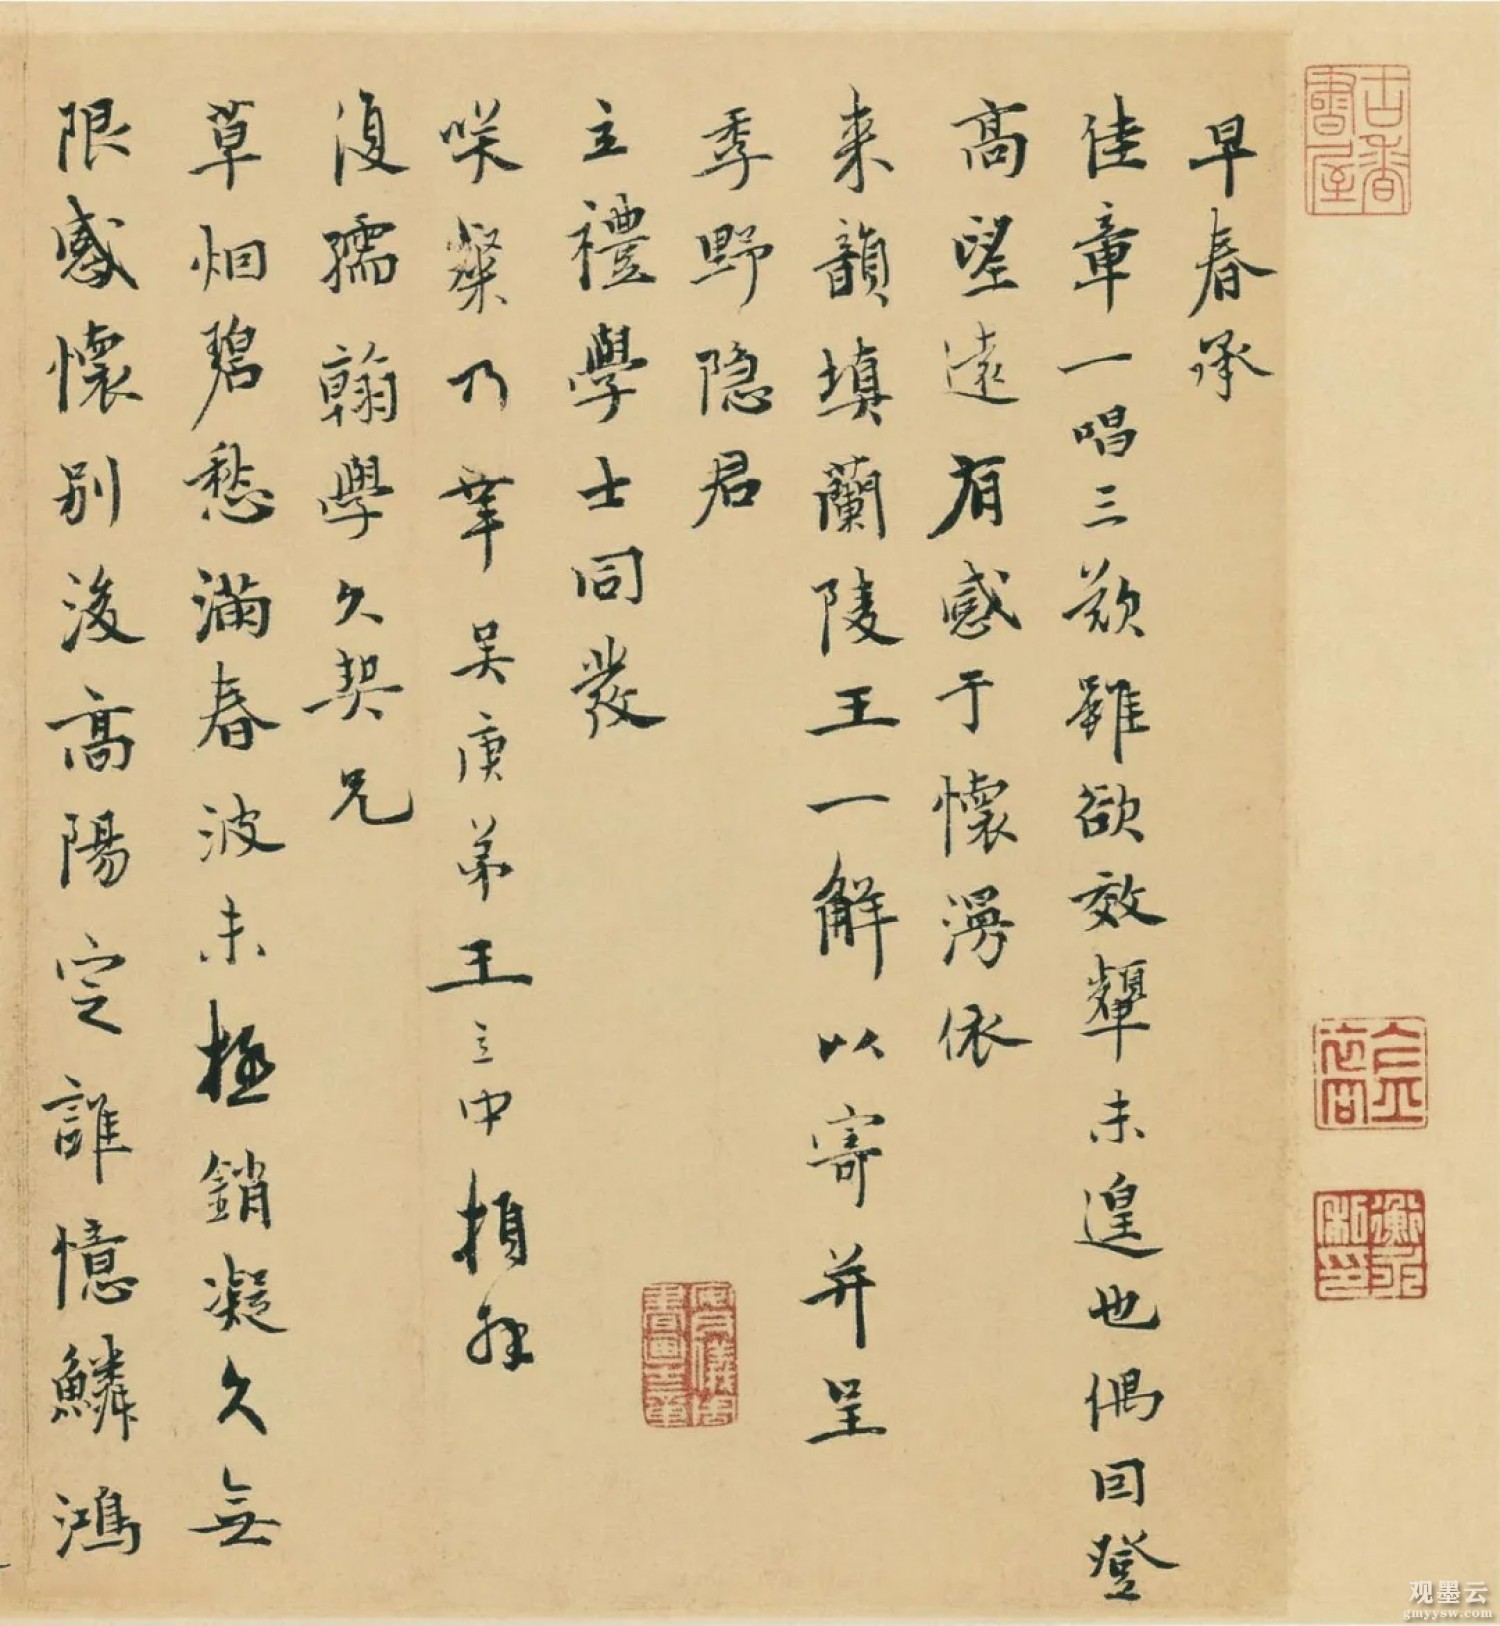 早春承
佳章一唱三歎雖欲效顰未遑也偶因登
高望遠有感于懷漫依
来韻填蘭陵王一解以寄并呈
季野隐君
立禮學士同發
咲粲乃幸吴庚弟王立中頓拜
復孺翰學久契兄
草烟碧愁滿春波未極銷凝久無
限感懷别後高陽定誰憶鱗鴻
古香書屋
安儀周書畫之章
观墨云
gmyysw.com